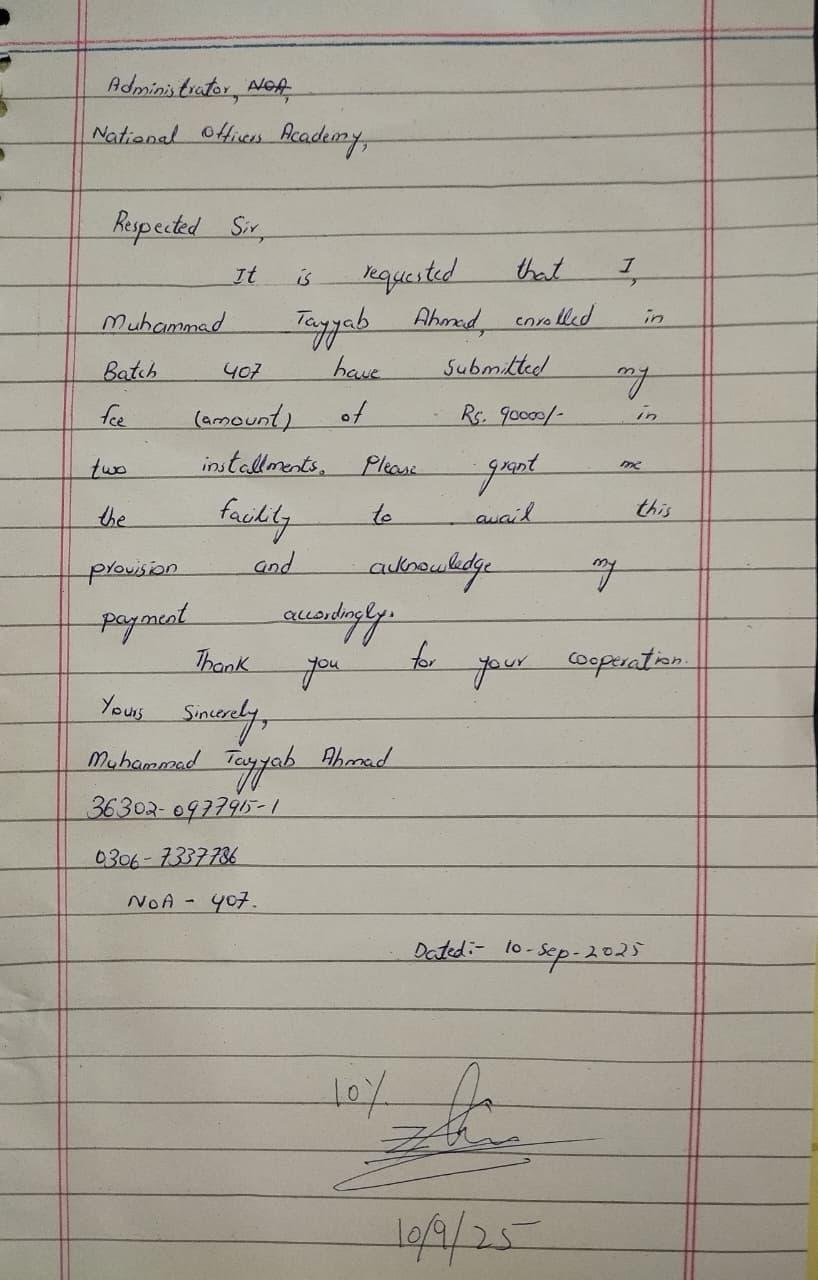 Administrator, NOA,
National Officers Academy,
Respected Sir,
It is requested that I,
Muhammad Tayyab Ahmad, enrolled in
Batch 407 have submitted my
fee (amount) of Rs. 90000/- in
two installments. Please grant me
the facility to avail this
provision and acknowledge my
payment accordingly.
Thank you for your cooperation.
Yours Sincerely,
Muhammad Tayyab Ahmad
36302-0977915-1
0306-7337786
NOA - 407.
Dated:- 10-Sep-2025
10%
10/9/25